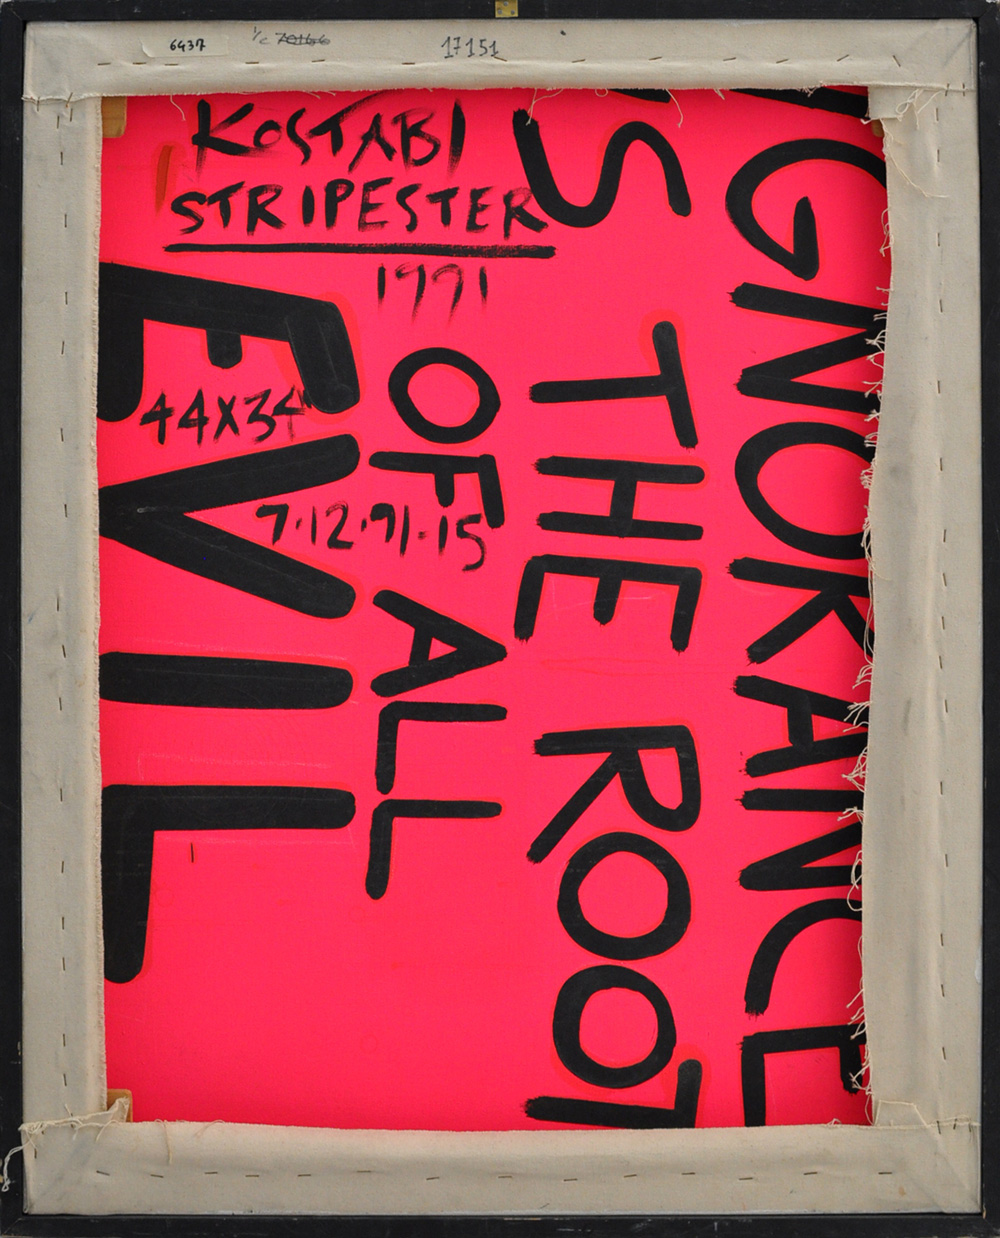 6437
17151
KOSTABI
STRIPESTER
1991
44X34"
7·12·91-15
IGNORANCE
IS THE ROOT
OF ALL
EVIL